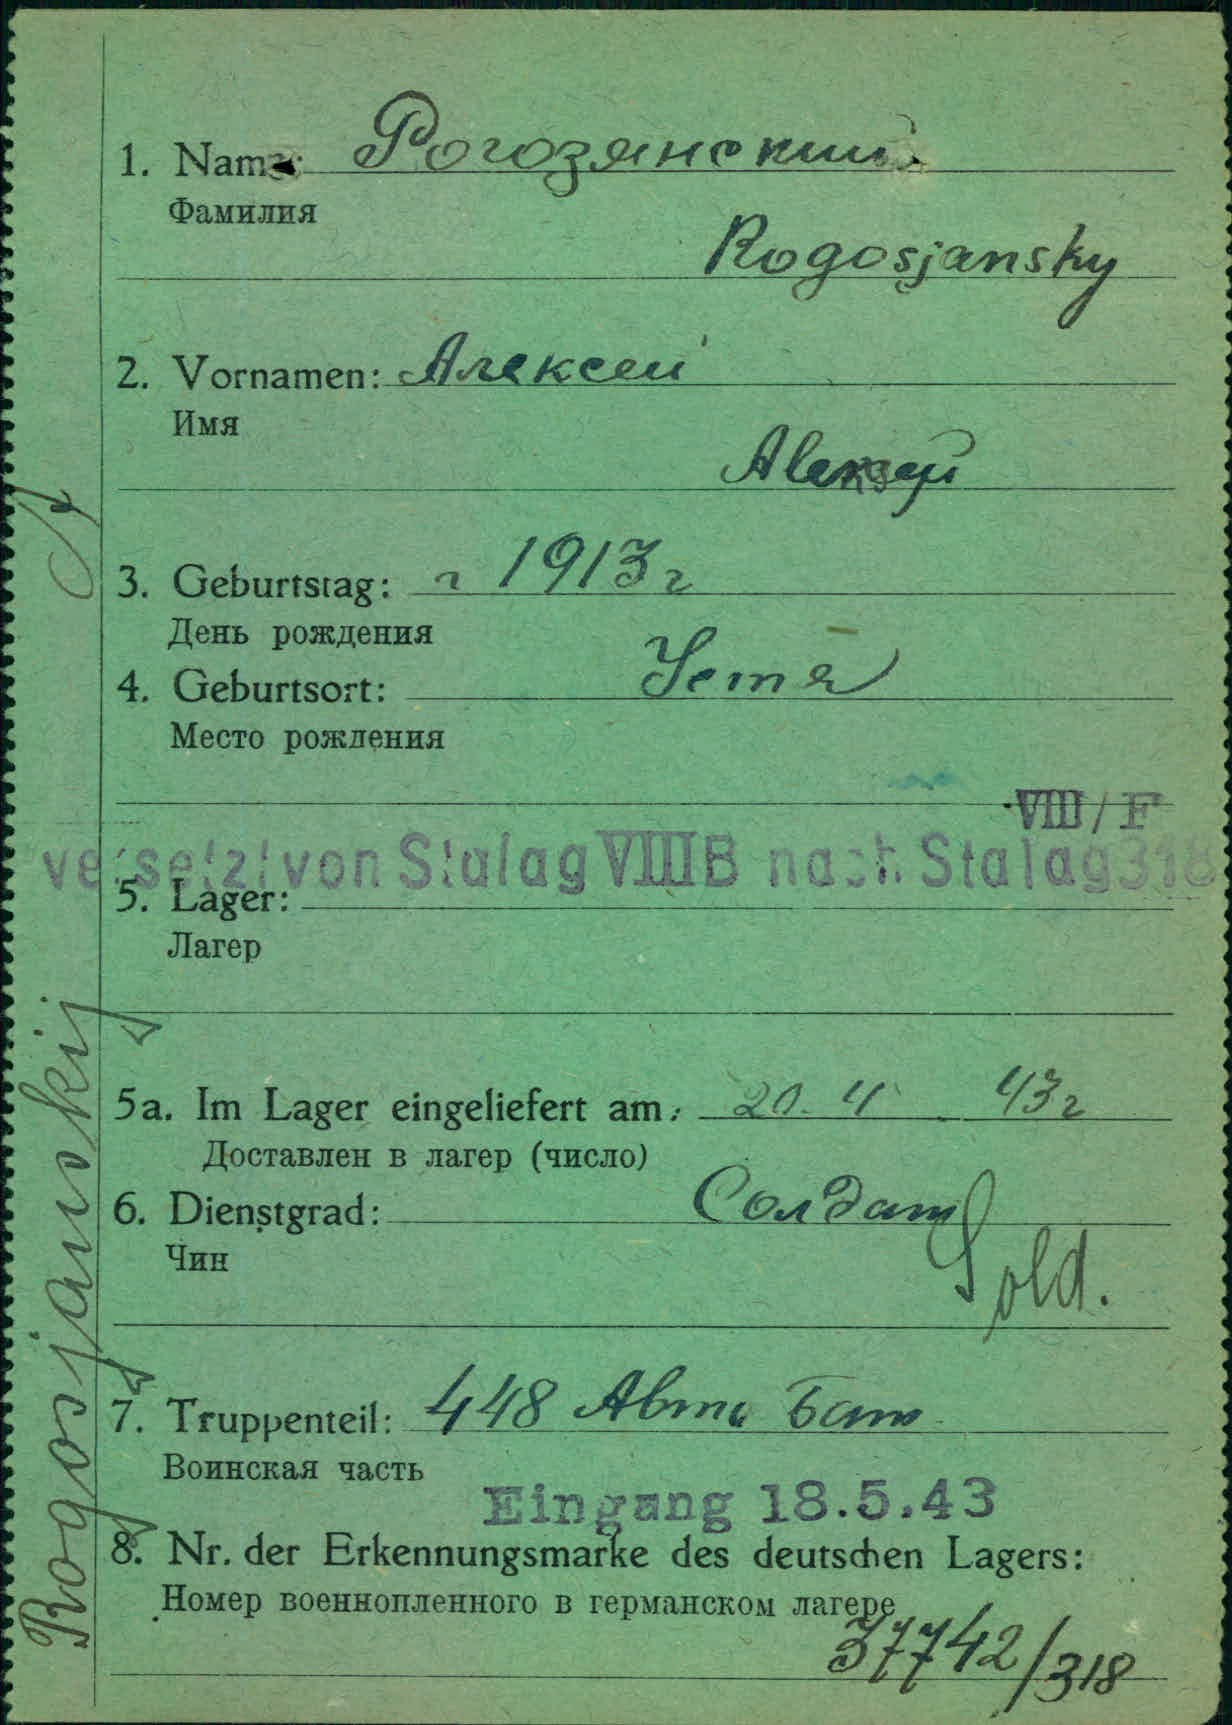 1. Name: Рогозянский
Фамилия
Rogosjansky
2. Vornamen: Алексей
Имя
Alexsej
3. Geburtstag: 1913 г
День рождения
4. Geburtsort:
Место рождения
VIII/F
versetzt von Stalag VIIIB nach Stalag 318
5. Lager:
Лагерь
5a. Im Lager eingeliefert am: 20. 4 43 г
Доставлен в лагер (число)
6. Dienstgrad: Солдат
Чин
Sold.
7. Truppenteil: 448 Авто Бат
Воинская часть
Eingang 18.5.43
8. Nr. der Erkennungsmarke des deutschen Lagers:
Номер военнопленного в германском лагере
37742/318
Rogosjanskij A